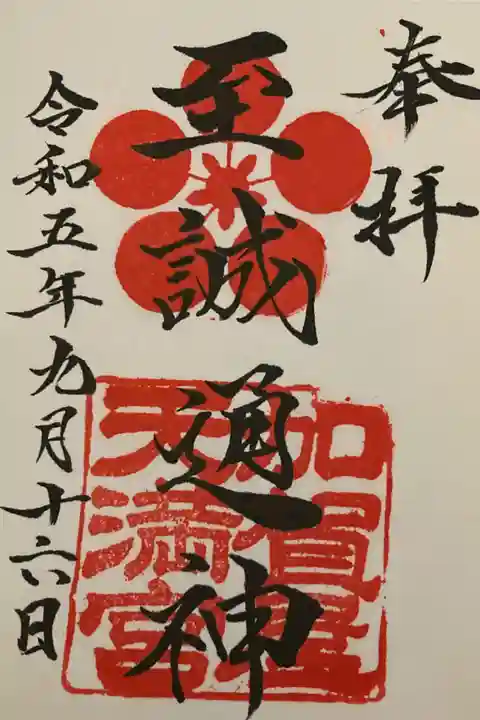 奉拝
至誠通神
加賀豊
天満宮
令和五年九月十六日